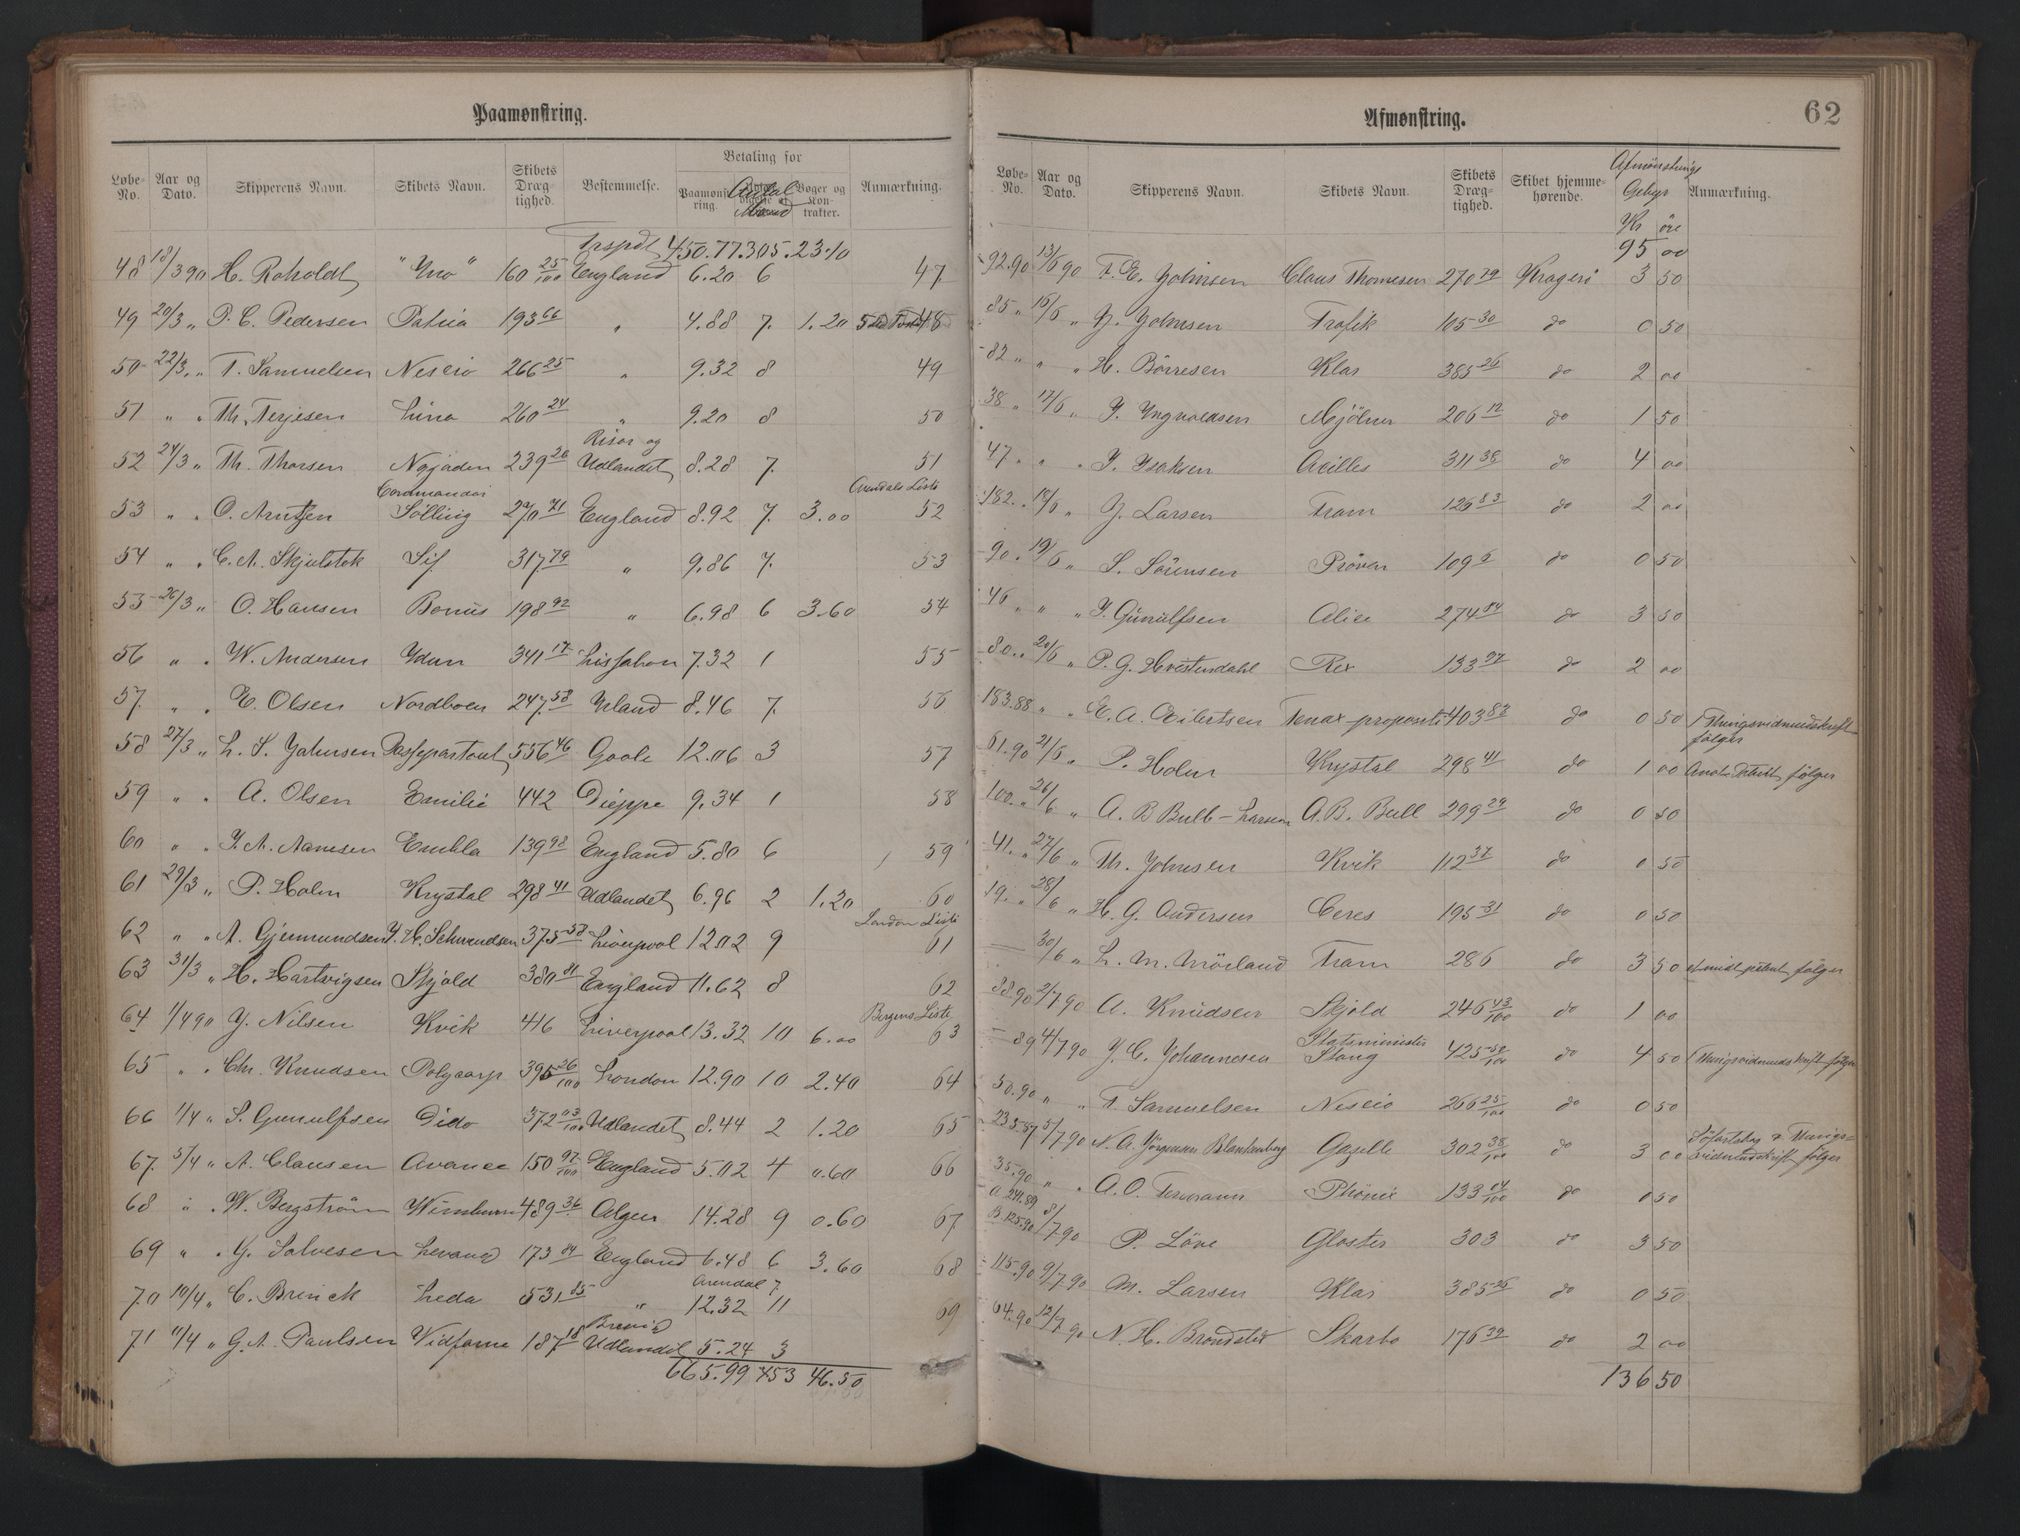 Paamønstring.
Løbe-No. Aar og Dato. Skipperens Navn. Skibets Navn. Skibets Dræg-tighed. Bestemmelse. Betaling for Paamønst-ring. Antal Mand Bøger og Kon-trakter. Anmærkning.
Trspdt 450.77. 305. 23.10
48 18/3 90 H. Roholdt "Yno" 160 25/100 England 6.20 6 47
49 20/3 " P. C. Pedersen Patria 193 66 " 4.88 7. 1.20 48
50 22/3 " T. Samuelsen Neseiø 266 25 " 9.32 8 49
51 " " Th. Terjesen Lina 260 24 " 9.20 8 50
52 24/3 " Th. Thorsen Najaden 239 26 Risør og Udlandet 8.28 7. 51
53 " " O. Arntzen Commandør Sølling 270 71 England 8.92 7. 3.00 Arendals Liste 52
54 " " C. A. Skjulstok Sif 317 79 " 9.86 7. 53
55 26/3 " O. Hansen Bonus 198 92 " 6.98 6 3.60 54
56 " " W. Andersen Ydun 341 17 Lissabon 7.32 1 55
57. " " E. Olsen Nordboen 247 58 Yrland 8.46 7. 56
58 27/3 " L. S. Johnsen Passepartout 556 46 Goole 12.06 3 57
59 " " A. Olsen Emilie 442 Dieppe 9.34 1 58
60 " " J. A. Aanesen Embla 139 98 England 5.80 6 59
61 29/3 " P. Holm Krystal 298 41 Udlandet 6.96 2 1.20 60
62 " " A. Gjermundsen J. H. Schwendsen 375 58 Liverpool 12.02 9 London Liste 61
63 31/3 " H. Hartvigsen Skjold 380 81 England 11.62 8 62
64 1/4 90 J. Nilsen Kvik 416 Liverpool 13.32 10 6.00 Bergens Liste 63
65 " " Chr. Knudsen Polycarp 395 26/100 London 12.90 10 2.40 64
66 1/4 " S. Gunulfsen Dido 372 03/100 Udlandet 8.44 2 1.20 65
67. 5/4 " A. Clausen Avance 150 97/100 England 5.02 4 0.60 66
68 " " W. Bergström Wimburn 489 36 Algier 14.28 9 0.60 67
69 " " J. Salvesen Levand 173 84 England 6.48 6 3.60 68
70 10/4 " C. Brinck Leda 531 85 " Arendal 7 12.32 11 69
71 11/4 " G. A. Paulsen Vidfarne 187 18 Brevig Udlandet 5.24 3
665.99 453 46.50
Afmønstring.
62
Løbe-No. Aar og Dato. Skipperens Navn. Skibets Navn. Skibets Dræg-tighed. Skibet hjemme-hørende. Afmønstrings Gebyr Kr øre Anmærkning.
95 00
92.90 13/6 90 F. E. Johnsen Claus Thomesen 270 79 Kragerø 3 50
85 " 16/6 " J. Johnsen Trafik 105 30 do 0 50
82 " " " H. Børresen Klar 385 26 do 2 00
38 " 17/6 " J. Yngvoldsen Mjölner 206 12 do 1 50
47 " " " J. Isaksen Acilles 311 38 do 4 00
182. " 18/6 " J. Larsen Fram 126 83 do 2 00
90 " 19/6 " S. Sörensen Pröven 109 6 do 0 50
46 " " " J. Gunulfsen Alice 274 84 do 3 50
80. " 20/6 " P. G. Hvistendahl Rex 133 37 do 2 00
183.88 " " E. A. Eilertsen Tenax propositi 403 83 do 0 50 Thingsvidnudskrift følger
61.90 21/6 " P. Holm Krystal 298 41 do 1 00
100. " 26/6 " A. B Bull-Larsen A. B. Bull 299 29 do 0 50
41. " 27/6 " Th. Johnsen Kvik 112 37 do 0 50
19. " 28/6 " H. G. Andersen Ceres 195 31 do 0 50
— 30/6 " L. M. Mörland Fram 286 do 3 50
88.90 2/7 90 A. Knudsen Skjold 246 43/100 do 1 00
— 89 4/7 90 J. C. Johannesen Statsminister Stang 425 50/100 do 4 50 Thingsvidnudskrift følger
50.90 " " T. Samuelsen Neseiø 266 25/100 do 0 50
235.87 5/7 90 N. A. Jörgensen Blankenberg Gazelle 302 38/100 do 3 00 Söfartsbog & Thingsvidneudskrift følger
35.90 " " A. O. Termann Phönix 133 04/100 do 0 50
A. 241.89 B. 125.90 8/7 90 P. Löve Gloster 303 do 3 50
115.90 9/7 90 M. Larsen Klar 385 26 do 0 50
64.90 12/7 90 N. H. Bröndsted Skarbo 176 39 do 2 00
136 50